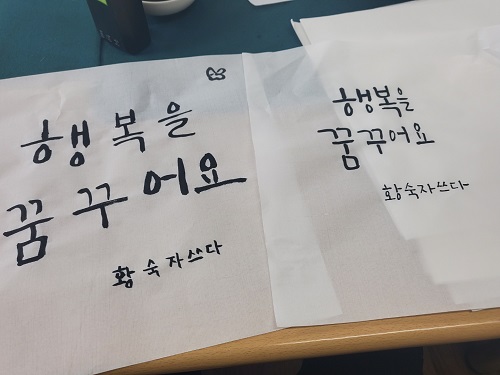 행복을
꿈꾸어요
황숙자쓰다
행복을
꿈꾸어요
황숙자쓰다